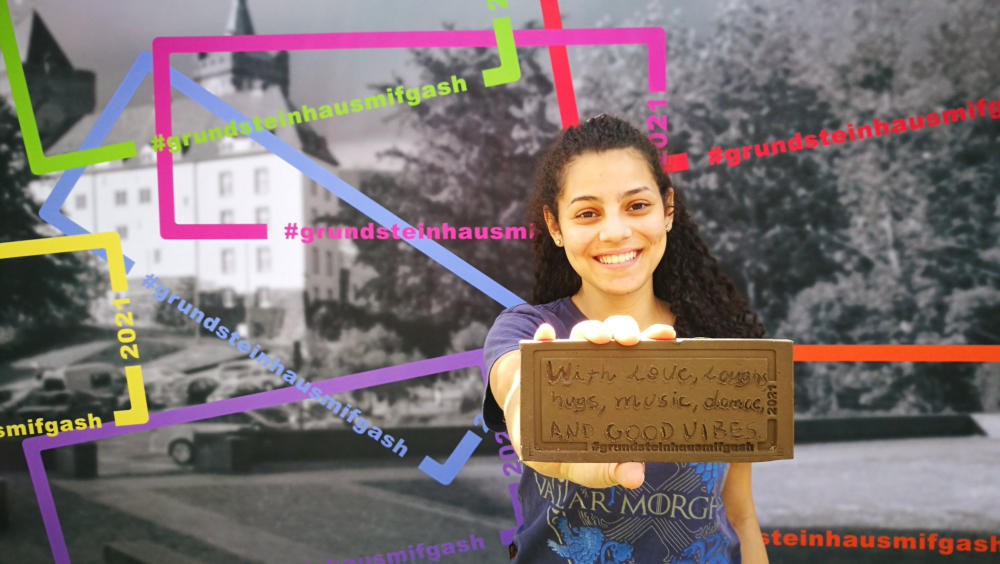 2
#grundsteinhausmifgash
2021
#grundsteinhausmifg
#grundsteinhausmi
2021
#grundsteinhausmifgash
smifgash
With love, laughs,
hugs, music, dance,
AND GOOD VIBES.
2021
#grundsteinhausmifgash
2
202
VALAR MORGH
steinhausmifgash
grundsteinhausmifgash